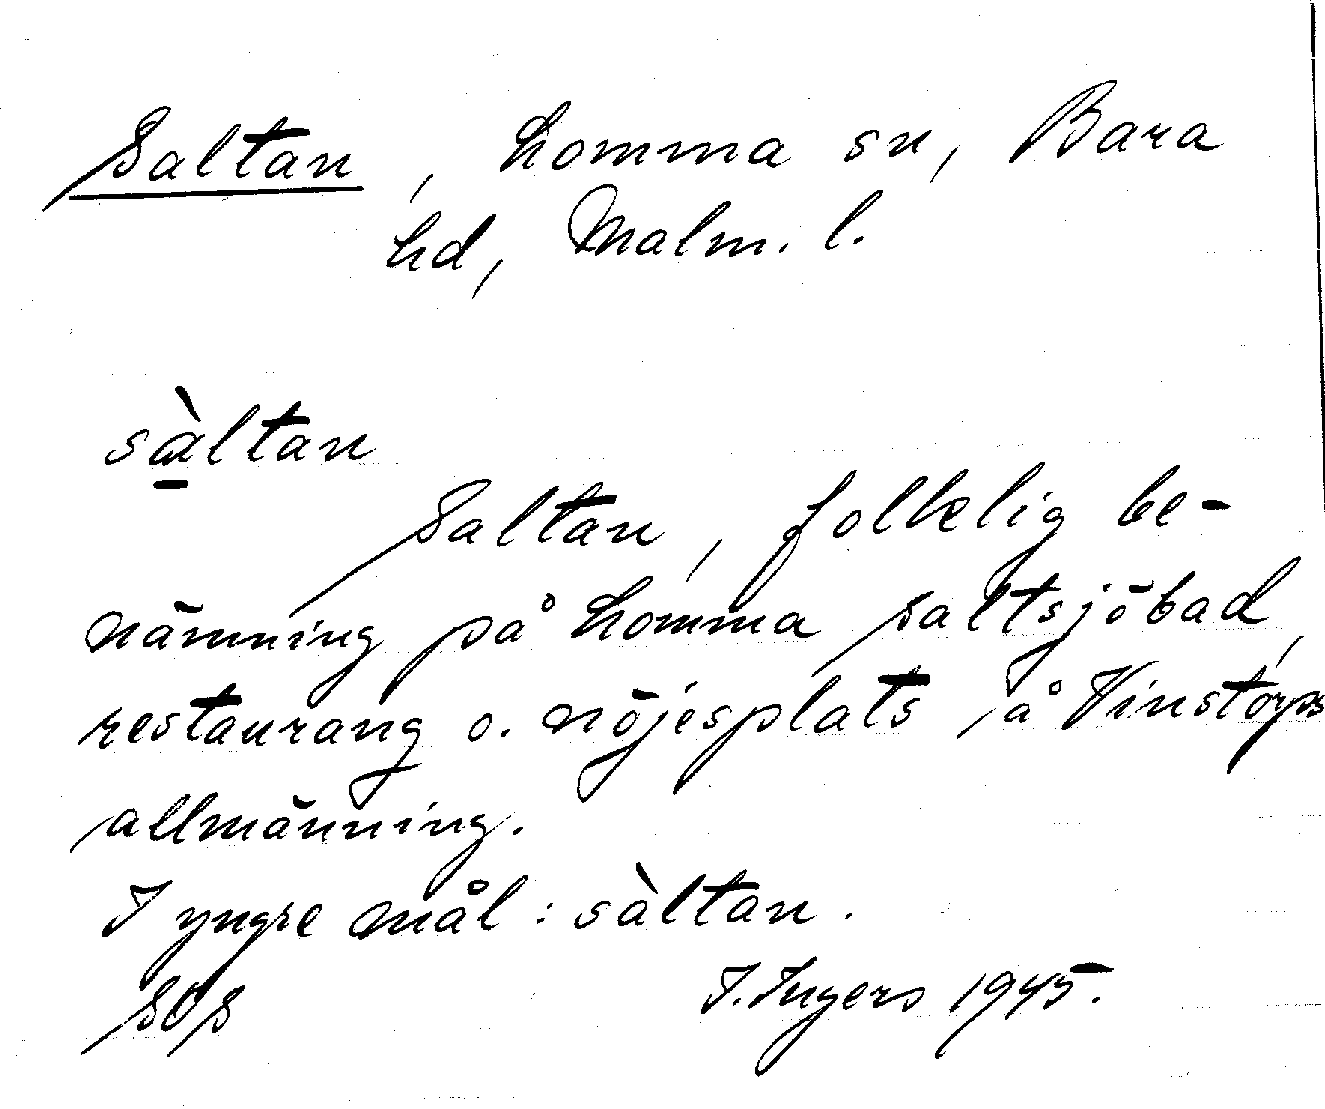 Saltan, Lomma sn, Bara
hd, Malm. l.
sàltan
Saltan, folklig be-
nämning på Lomma saltsjöbad,
restaurang o. nöjesplats å Vinstorps
allmänning.
I yngre mål: sàltan.
SOS I. Ingers 1945.